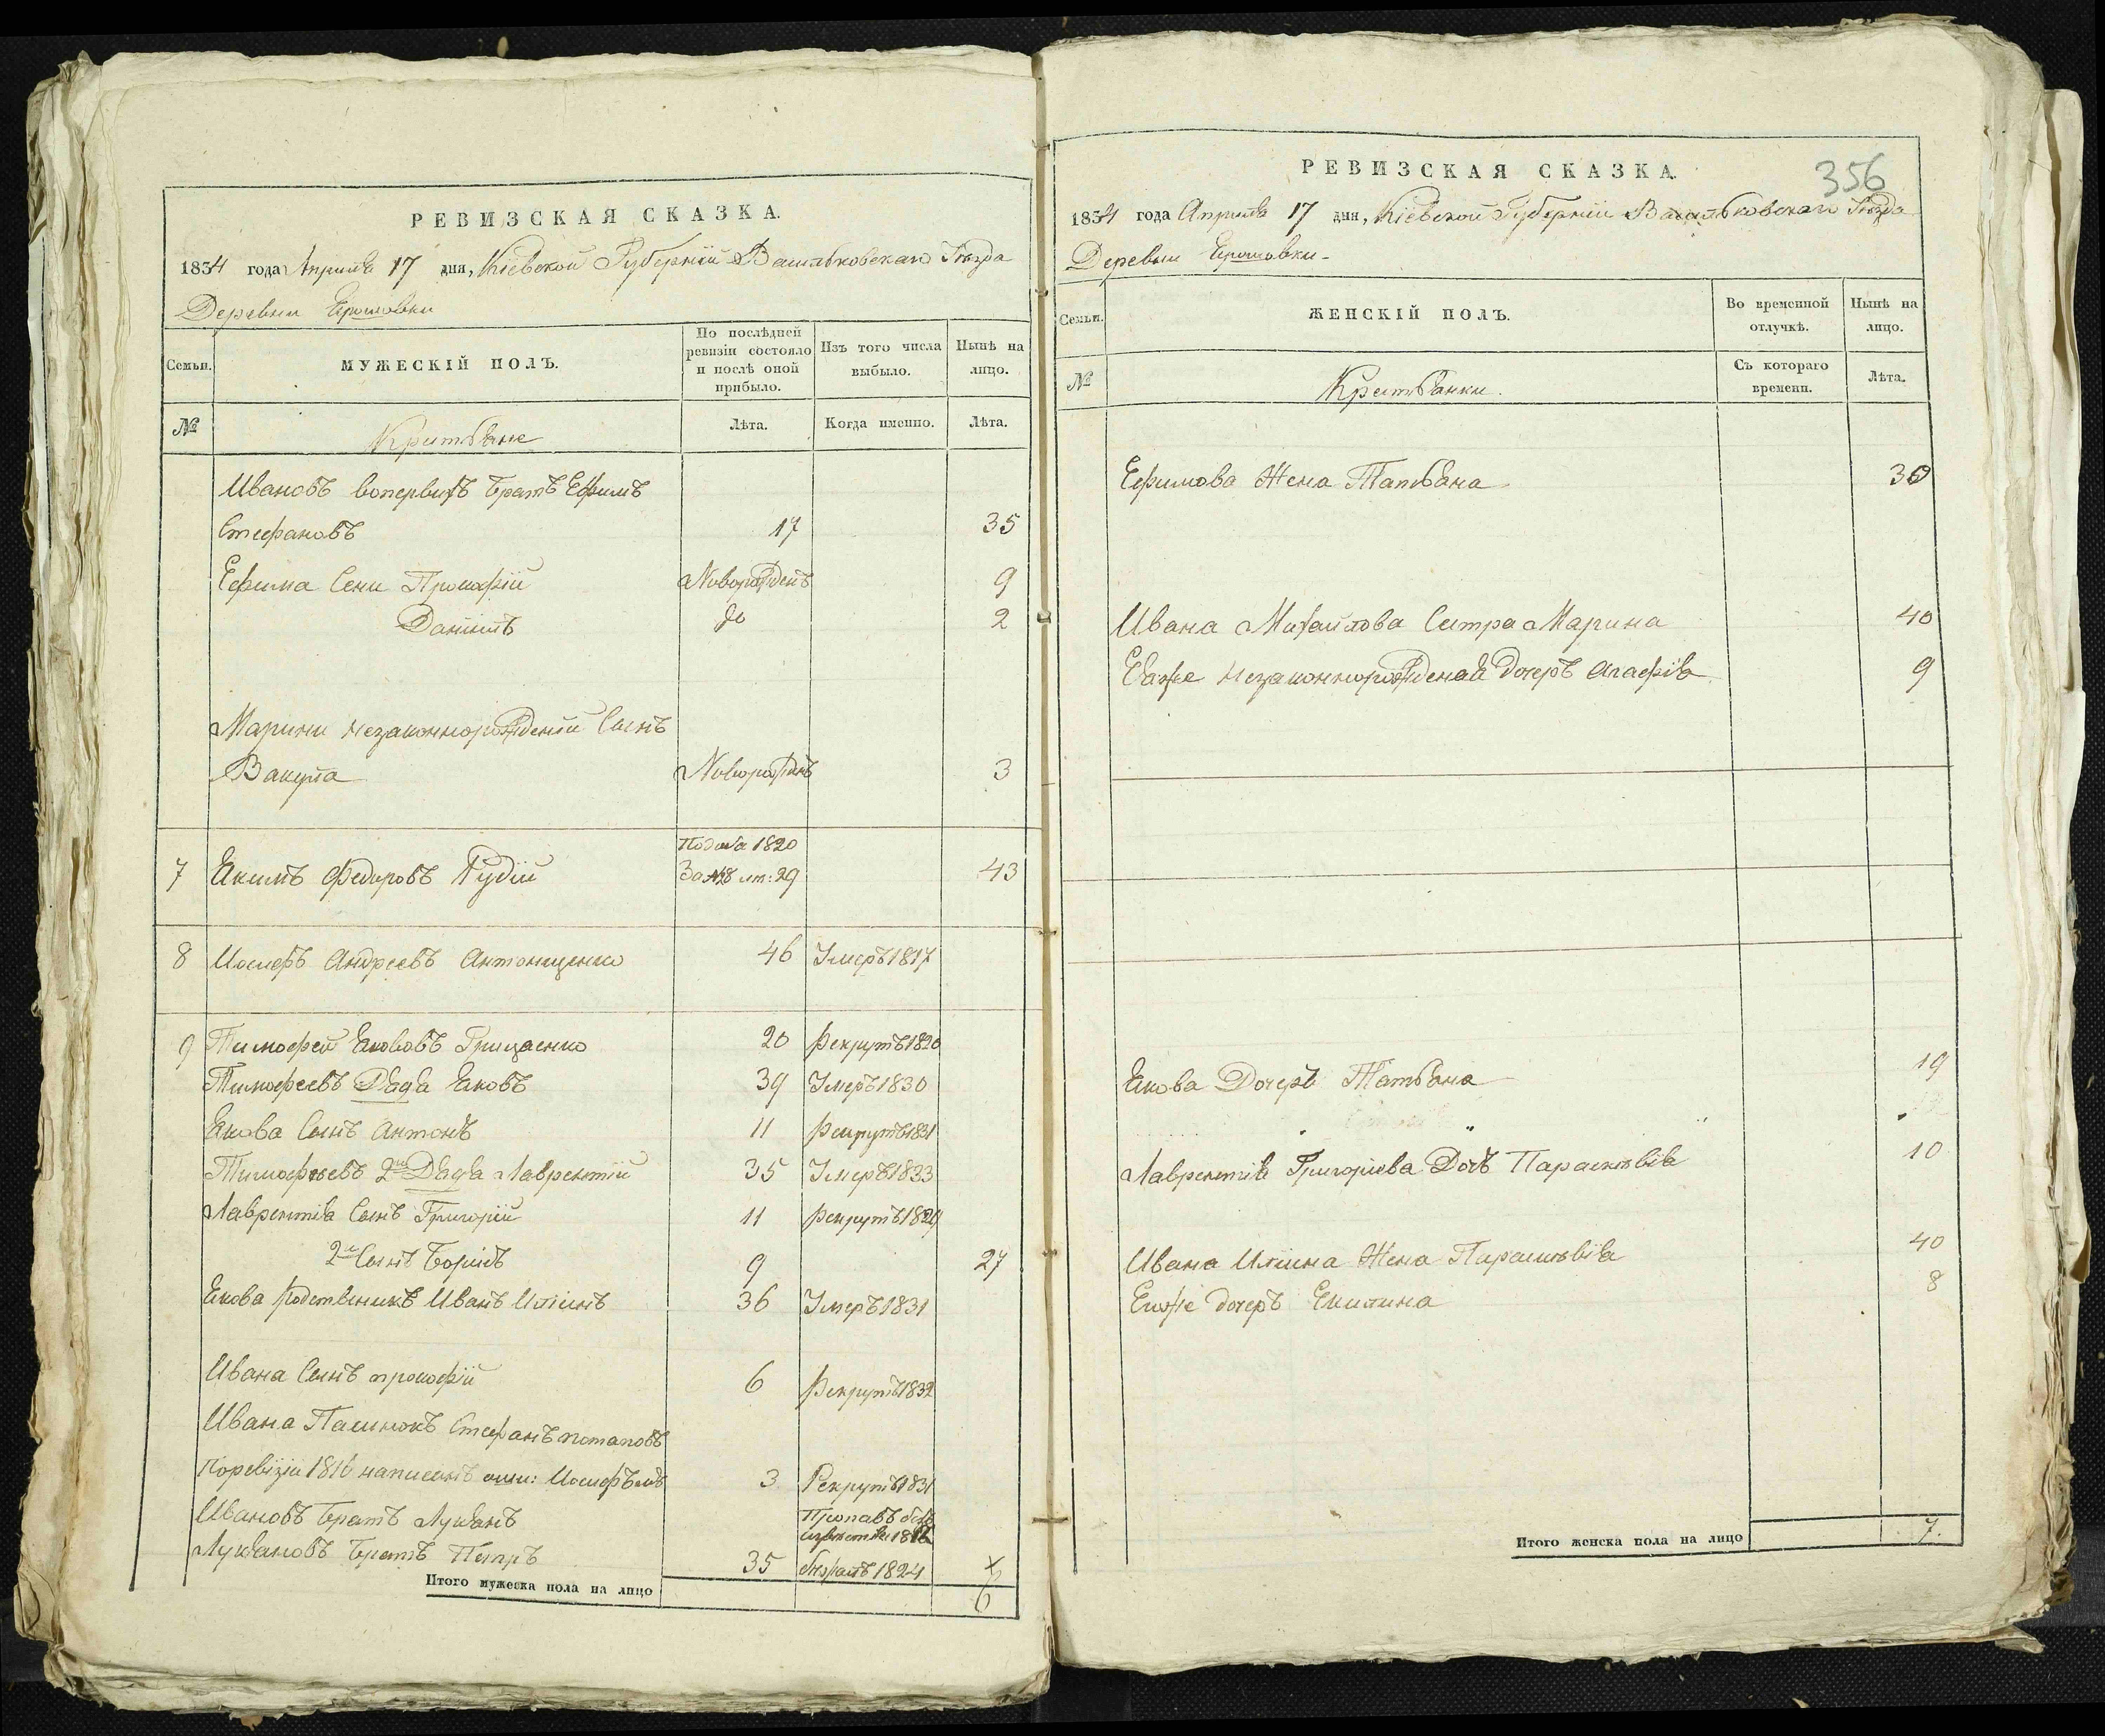 РЕВИЗСКАЯ СКАЗКА.
1834 года Апреля 17 дня, Кіевской Губерніи Васильковскаго Уезда
Деревни Ерошовки
Семьи.
МУЖЕСКІЙ ПОЛЪ.
По послѣдней ревизіи состояло и послѣ оной прибыло.
Изъ того числа выбыло.
Нынѣ на лицо.
№
Крестьяне
Лѣта.
Когда именно.
Лѣта.
Ивановъ вопервыхъ братъ Ефимъ
Стефановъ 17 35
Ефима Сени Прокофій Новорожденъ 9
Даниилъ до 2
Марини незаконнорожденій Сынъ
Вакула Новорожденъ 3
Подана 1820
7 Екимъ Федоровъ Рудій За №8 лт: 29 43
8 Иосифъ Андреевъ Антонищенко 46 Умеръ 1817
9 Тимофей Якововъ Грицаенко 20 рекрутъ 1820
Тимофеевъ Дядя Яковъ 39 Умеръ 1830
Якова Сынъ Антонъ 11 рекрутъ 1831
Тимофѣевъ 2й Дядя Лаврентій 35 Умеръ 1833
Лаврентія Сынъ Григорій 11 рекрутъ 1829
2й Сынъ Борисъ 9 27
Якова родственикъ Иванъ Илїинъ 36 Умеръ 1831
Ивана Сынъ прокофій 6 Рекрутъ 1832
Ивана Пасинокъ Стефанъ потаповъ
поревізіи 1816 написанъ Иосифъмъ 3 Рекрутъ 1831
Ивановъ братъ Лукянъ Пропавъ безъ
извѣстія
Лукяновъ братъ Петръ 35 1824
Итого мужеска пола на лицо 6
РЕВИЗСКАЯ СКАЗКА.
356
1834 года Апреля 17 дня, Кіевской Губерніи Васильковскаго Уезда
Деревни Ерошовки
Семьи.
ЖЕНСКІЙ ПОЛЪ.
Во временной отлучкѣ.
Нынѣ на лицо.
№
Крестьянки.
Съ котораго времени.
Лѣта.
Ефимова Жена Татьяна 30
Ивана Михайлова Систра Марина 40
Еяже незаконнорожденая дочеръ Агафія 9
Якова Дочеръ Татьяна 19
Лаврентія Григоріева Дочъ Парасковія 10
Ивана Илїина Жена Парасковія 40
Егоже дочеръ Екилина 8
Итого женска пола на лицо 7.